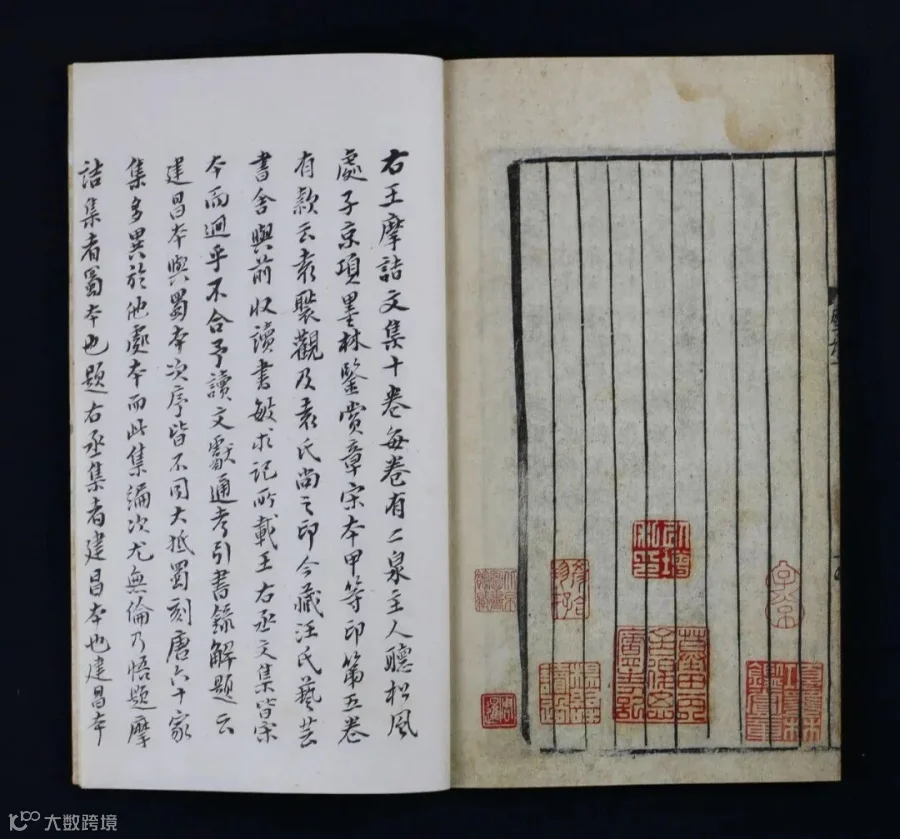 右王摩詰文集十卷每卷有二泉主人聽松風
處子京項墨林鑒賞章宋本甲等印第五卷
有款云袁褧觀及袁氏尚之印今藏汪氏藝芸
書舍與前收讀書敏求記所載王右丞文集皆宋
本而迥乎不合予讀文獻通考引書錄解題云
建昌本與蜀本次序皆不同大抵蜀刻唐六十家
集多異於他處本而此集編次尤無倫乃悟題摩
詰集者蜀本也題右丞集者建昌本也建昌本
子京
項墨林
鑑賞章
楊氏
大数跨境